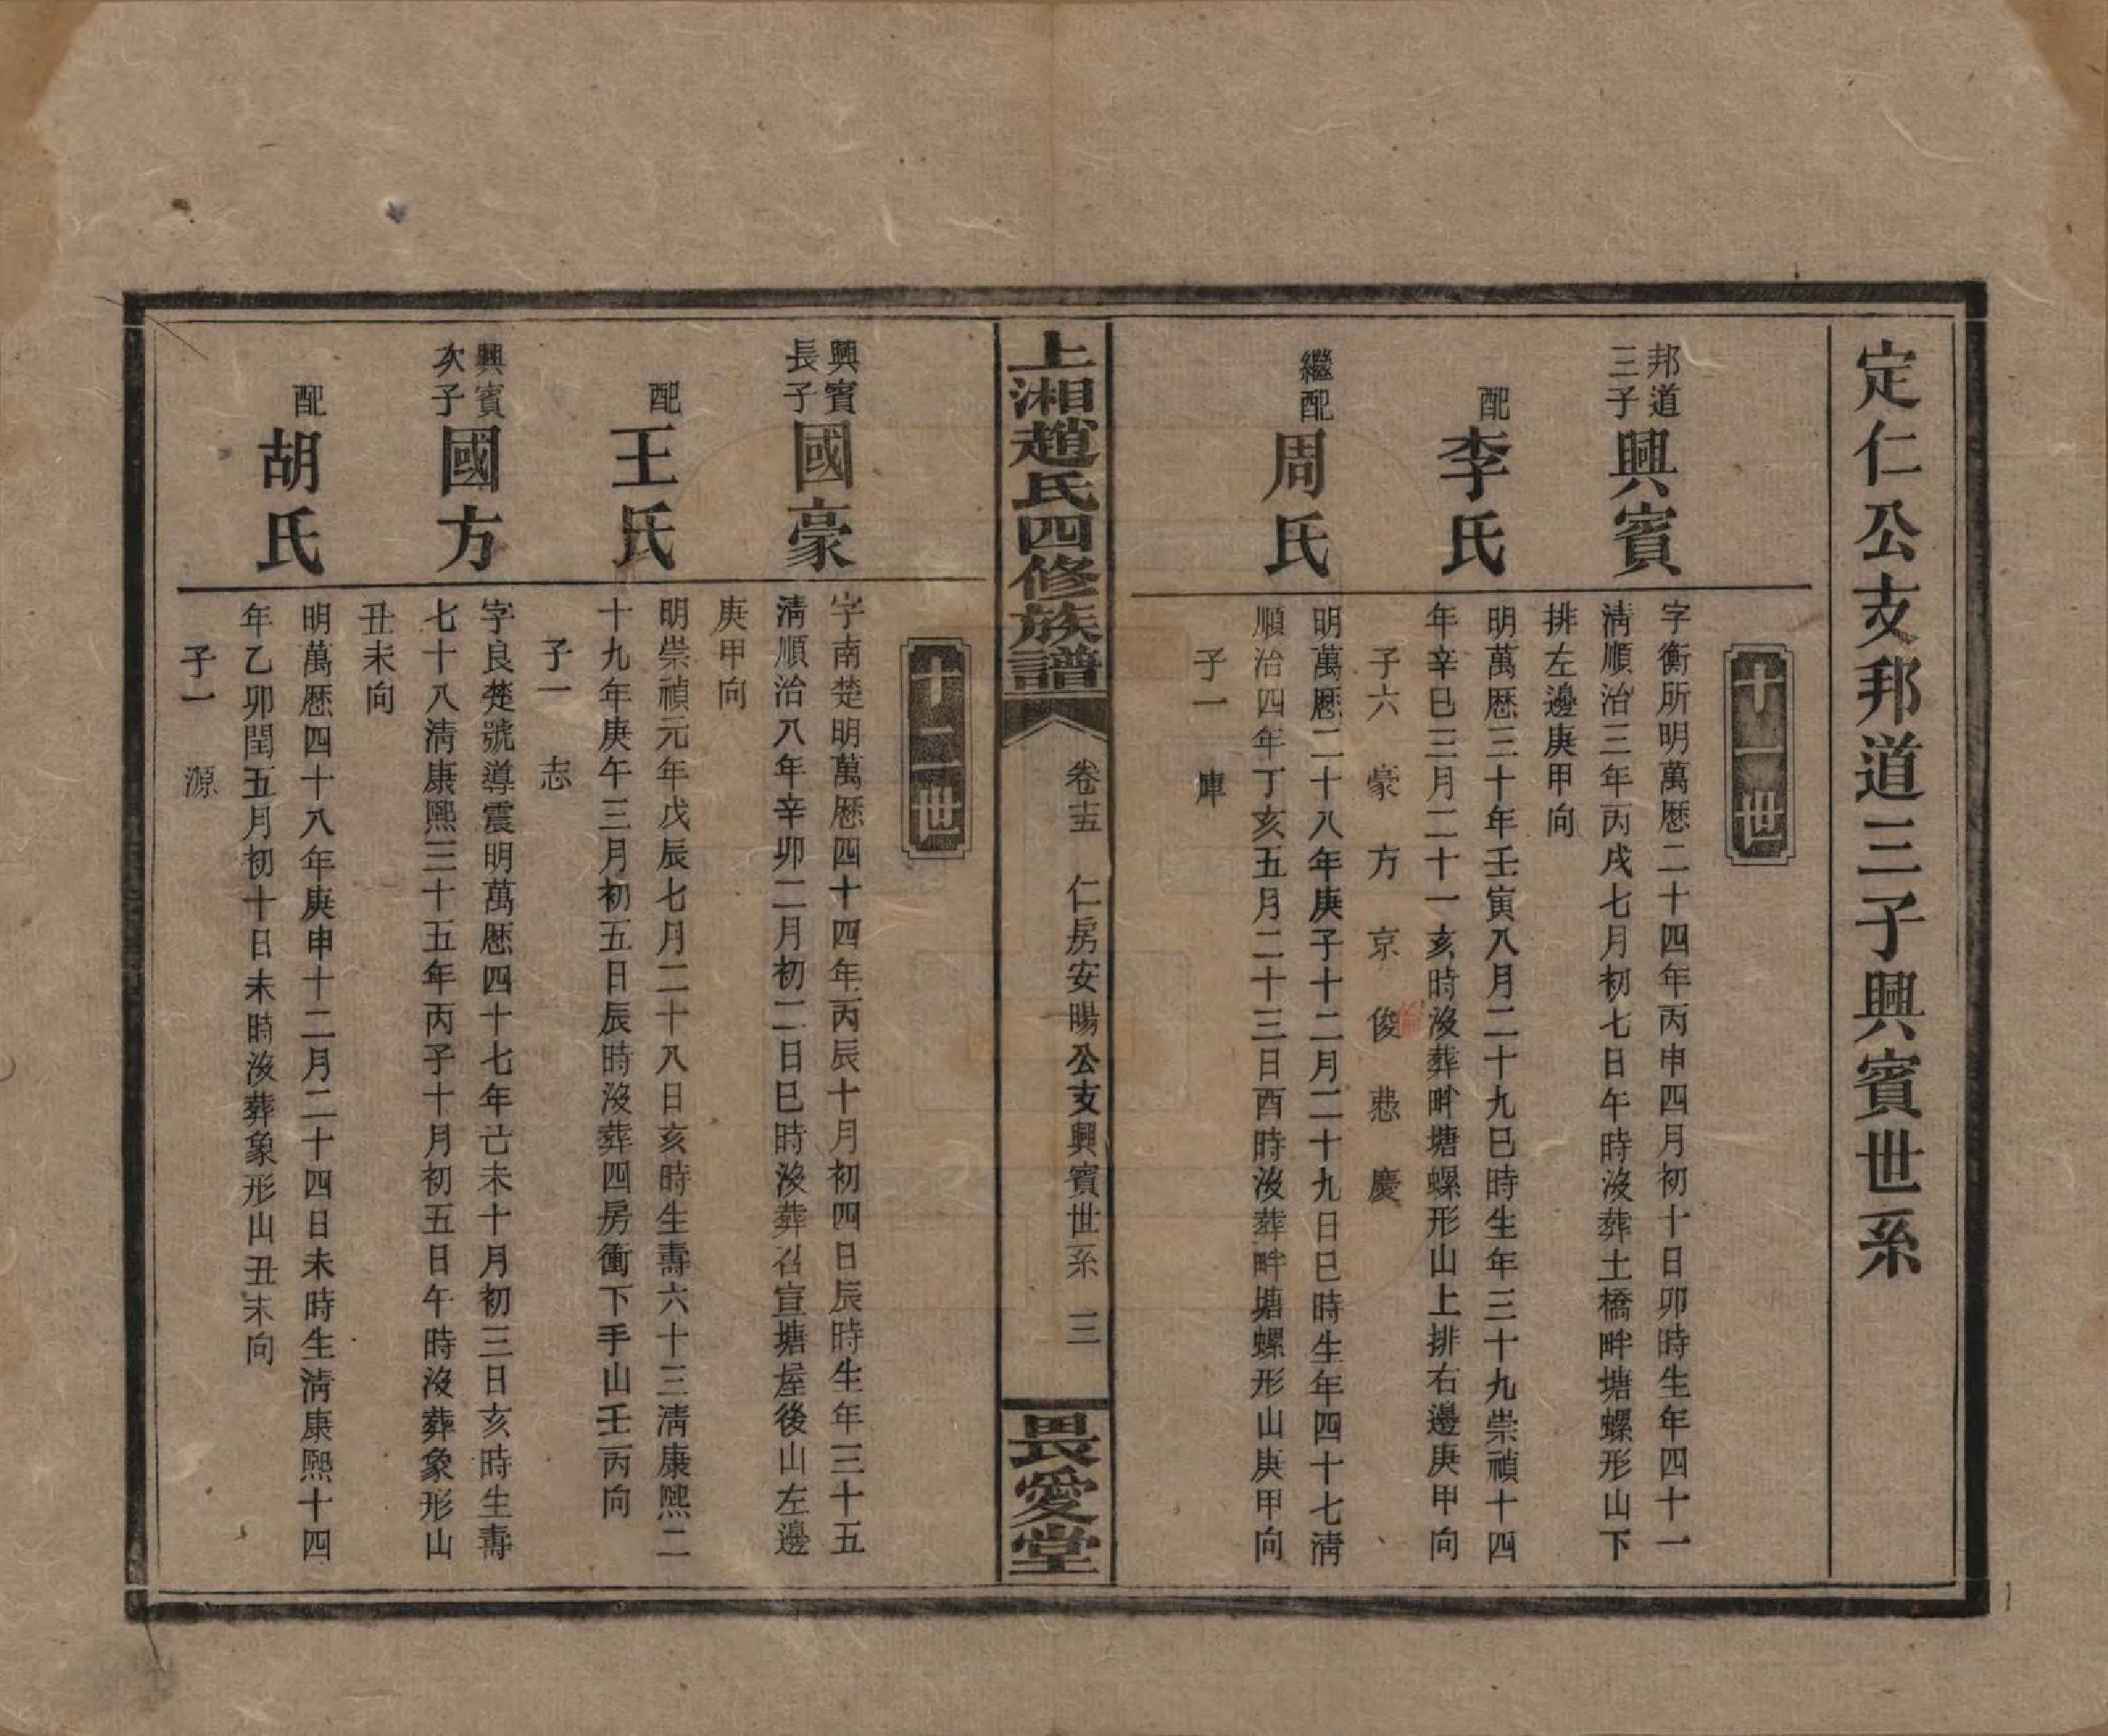 定仁公支邦道三子興賓世系
十一世
邦道
三子
興賓
字衡所明萬歷二十四年丙申四月初十日卯時生年四十一
淸順治三年丙戌七月初七日午時沒葬土橋畔塘螺形山下
排左邊庚甲向
配
李氏
明萬歷三十年壬寅八月二十九巳時生年三十九崇禎十四
年辛巳三月二十一亥時沒葬畔塘螺形山上排右邊庚甲向
子六 豪 方 京 俊 慸 慶
繼配
周氏
明萬歷二十八年庚子十二月二十九日巳時生年四十七淸
順治四年丁亥五月二十三日酉時沒葬畔塘螺形山庚甲向
子一 庫
上湘趙氏四修族譜
卷十五 仁房安暘公支興賓世系 三
畏愛堂
十二世
興賓
長子
國豪
字南楚明萬歷四十四年丙辰十月初四日辰時生年三十五
淸順治八年辛卯二月初二日巳時沒葬召宣塘屋後山左邊
庚甲向
配
王氏
明崇禎元年戊辰七月二十八日亥時生壽六十三淸康熙二
十九年庚午三月初五日辰時沒葬四房衝下手山壬丙向
子一 志
興賓
次子
國方
字良楚號導震明萬歷四十七年己未十月初三日亥時生壽
七十八淸康熙三十五年丙子十月初五日午時沒葬象形山
丑未向
配
胡氏
明萬歷四十八年庚申十二月二十四日未時生淸康熙十四
年乙卯閏五月初十日未時沒葬象形山丑未向
子一 源